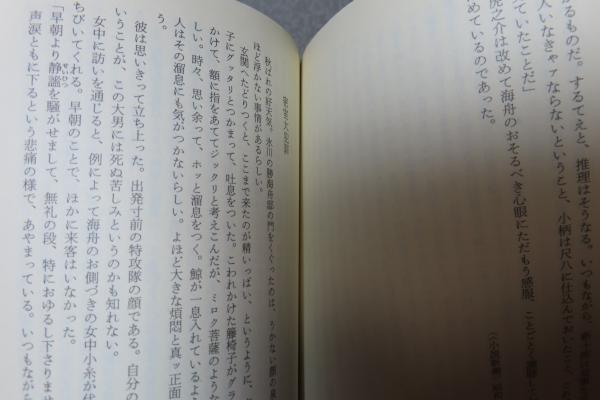 がるものだ。するてえと、推理はそうなる。いつもながら、
人いなきゃァならないということ、小柄は尺八に仕込んでおいたこと、
ていたことだ」
虎之介は改めて海舟のおそるべき心眼にただもう感服、ことごとく
めているのであった。
密室大犯罪
秋ばれの好天気。氷川の勝海舟邸の門をくぐったのは、うかない顔の
ほど浮かない事情があるらしい。
玄関へたどりつくと、ここまで来たのが精いっぱい、というように、
子にグッタリとつかまって、吐息をついた。こわれかけた籐椅子がグラ
かけて、額に指をあててジックリと考えこんだが、ミロク菩薩のような
しい。時々、思い余って、ホッと溜息をつく。鯨が一息入れているよ
人はその溜息にも気がつかないらしい。よほど大きな煩悶と真ッ正面
う。
彼は思いきって立ち上った。出発寸前の特攻隊の顔である。自分の
いうことが、この大男には死ぬ苦しみというのかも知れない。
女中に訪いを通じると、例によって海舟のお側づきの女中小糸が
ちびいてくれる。早朝のことで、ほかに来客はいなかった。
「早朝より静謐を騒がせまして、無礼の段、特におゆるし下さりませ
声涙ともに下るという悲痛の様で、あやまっている。いつもながら